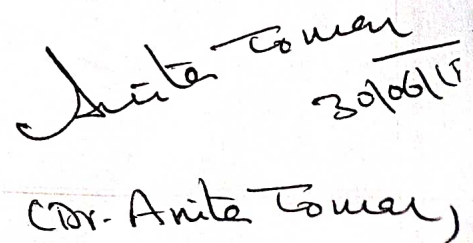 Anita Tomar
30/06/15
(Dr. Anita Tomar)